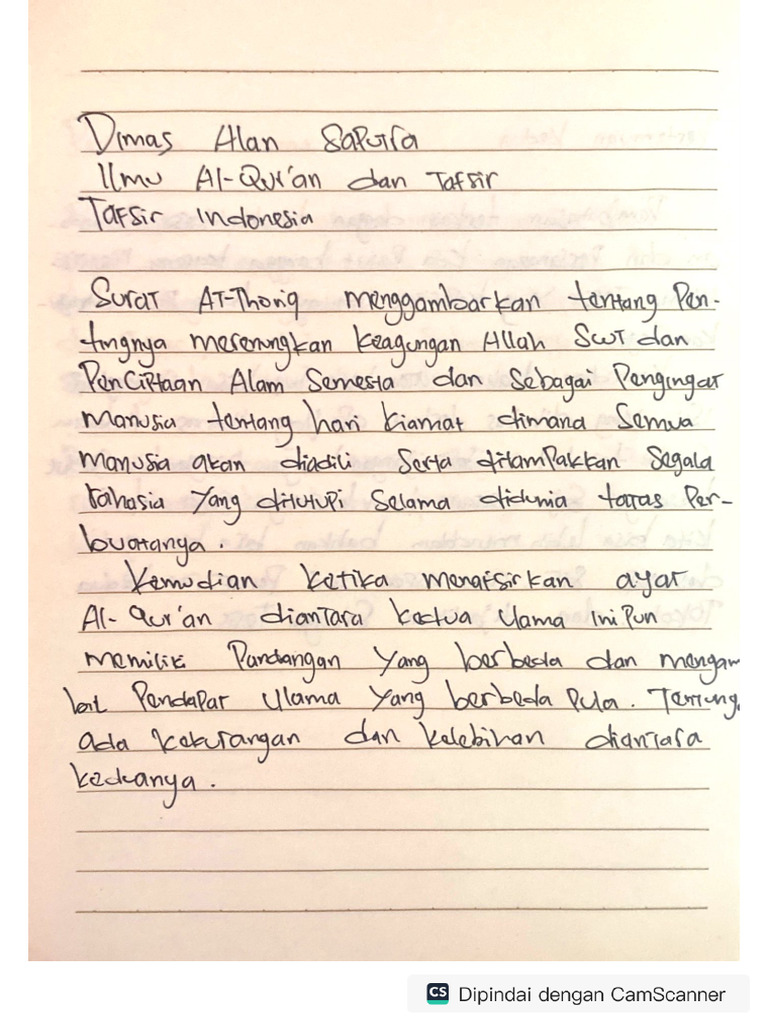 Dimas Alan Saputra
Ilmu Al-Qur'an dan Tafsir
Tafsir Indonesia
Surat AT-Thoriq menggambarkan tentang Pen-
tingnya merenungkan keagungan Allah SWT dan
Penciptaan Alam Semesta dan Sebagai Pengingat
manusia tentang hari kiamat dimana Semua
manusia akan diadili Serta ditampakkan Segala
rahasia Yang ditutupi Selama didunia Per-
buatanya.
Kemudian ketika menafsirkan ayat
Al-Qur'an diantara kedua Ulama ini Pun
memiliki Pandangan Yang berbeda dan mengam
bil Pendapat Ulama Yang berbeda Pula.
ada kekurangan dan kelebihan diantara
keduanya.
CS Dipindai dengan CamScanner